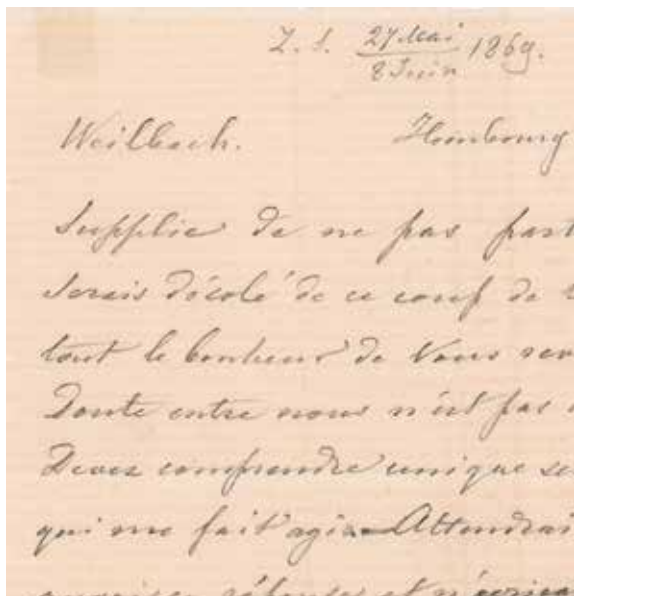 Z. S. 27 Mai / 8 Juin 1869.
Weilbach. Hombourg
Supplie de ne pas part
Serais décolé de ce coup de
tout le bonheur de Vous rev
Doute entre nous n'est pas
Devez comprendre unique se
qui me fait agir. – Attendrai
réponse et n'écrirai